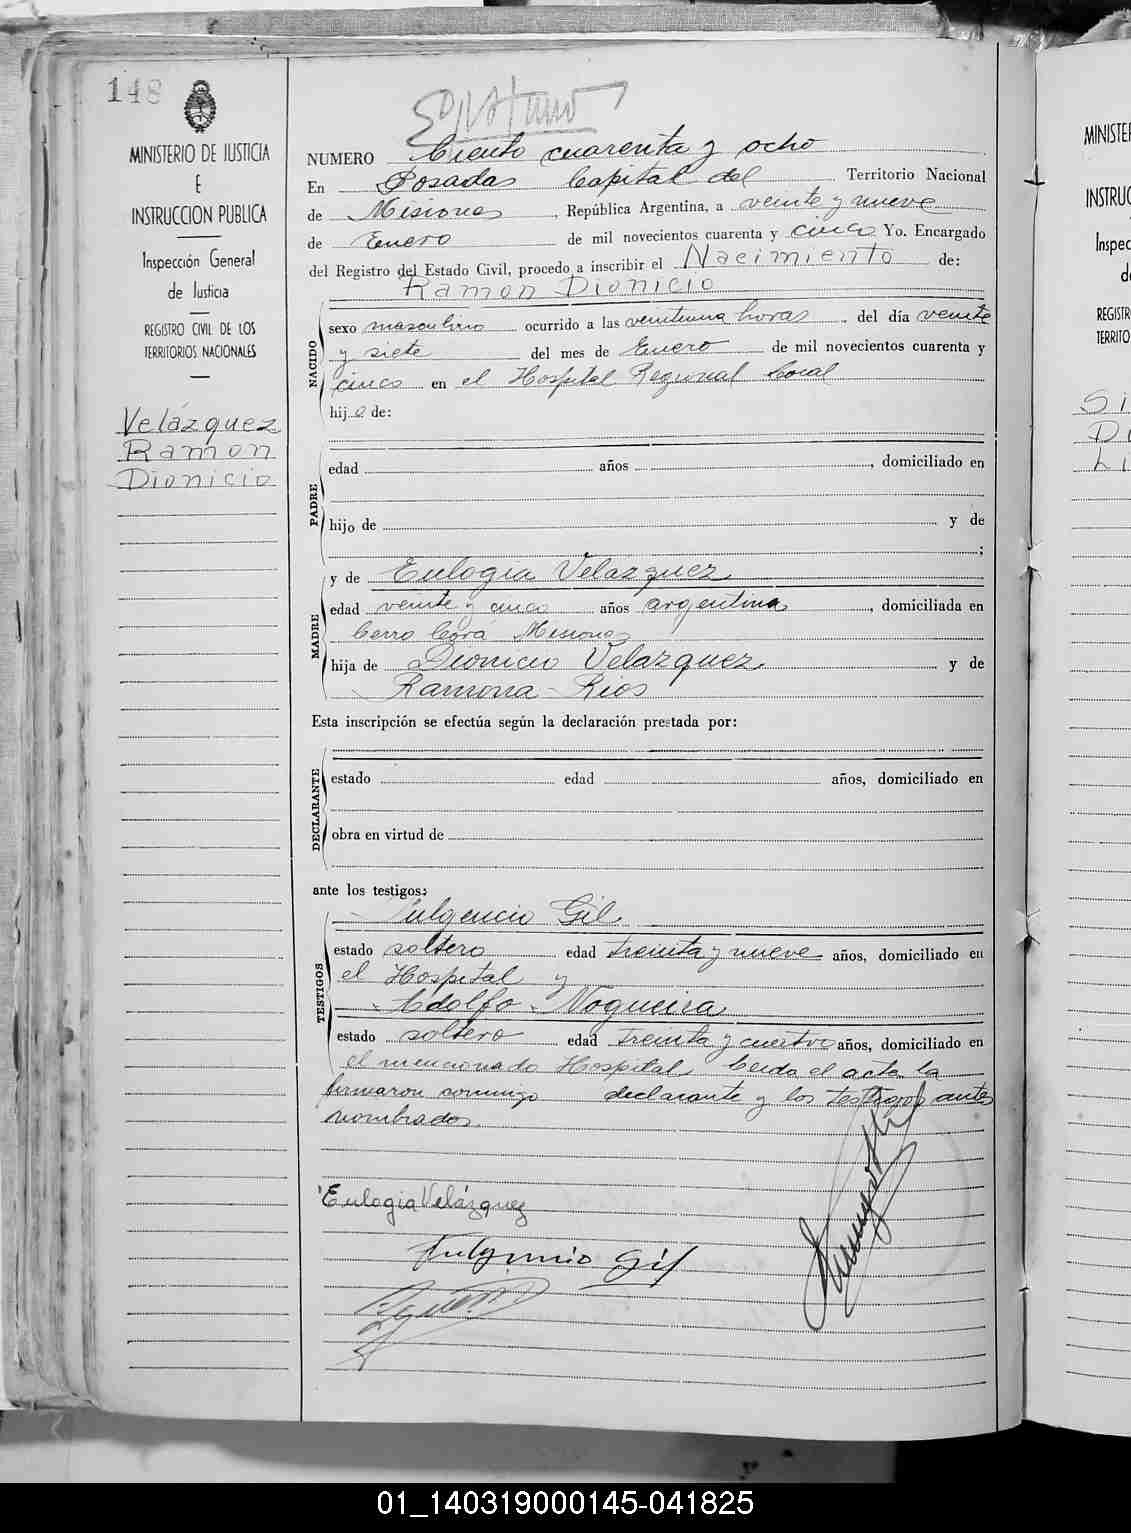 148
MINISTERIO DE JUSTICIA
E
INSTRUCCION PUBLICA
Inspección General
de Justicia
REGISTRO CIVIL DE LOS
TERRITORIOS NACIONALES
Velázquez
Ramon
Dionicio
NUMERO Ciento cuarenta y ocho
En Posadas Capital del Territorio Nacional
de Misiones, República Argentina, a veinte y nueve
de Enero de mil novecientos cuarenta y cinco Yo. Encargado
del Registro del Estado Civil, procedo a inscribir el Nacimiento de:
Ramon Dionicio
NACIDO
sexo masculino ocurrido a las veintiuna horas, del día veinte
y siete del mes de Enero de mil novecientos cuarenta y
cinco en el Hospital Regional Local
hijo de:
PADRE
edad años , domiciliado en
hijo de y de
;
MADRE
y de Eulogia Velazquez
edad veinte y cinco años argentina, domiciliada en
Cerro Corá Misiones
hija de Dionicio Velazquez y de
Ramona Rios
Esta inscripción se efectúa según la declaración prestada por:
DECLARANTE
estado edad años, domiciliado en
obra en virtud de
ante los testigos:
TESTIGOS
Fulgencio Gil
estado soltero edad treinta y nueve años, domiciliado en
el Hospital y
Adolfo Nogueira
estado soltero edad treinta y cuatro años, domiciliado en
el mencionado Hospital. Leida el acta la
firmaron conmigo declarante y los testigos antes
nombrados.
Eulogia Velázquez
Fulgencio Gil
MINISTE
INSTRUC
Inspec
d
REGISTR
TERRITO
Si
Di
Li
01_140319000145-041825